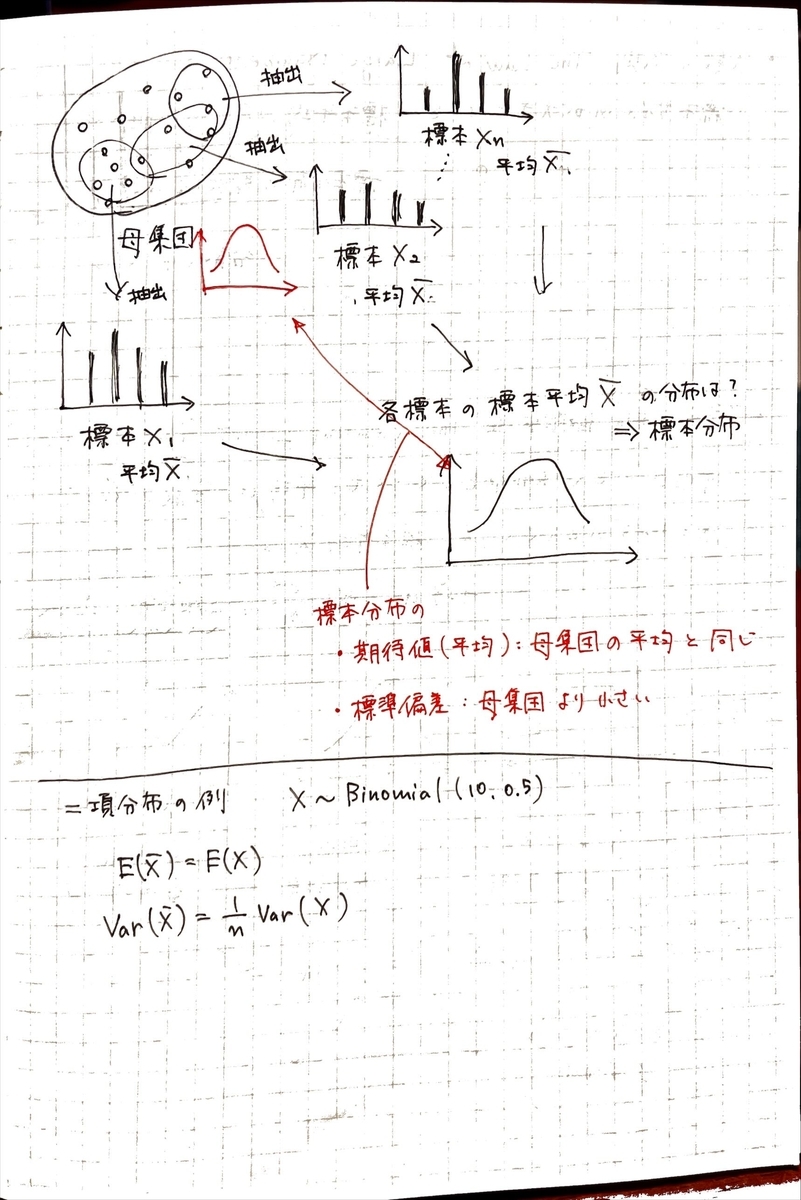 抽出
標本 Xn
平均 X̄
抽出
標本 X₂
平均 X̄
母集団
抽出
標本 X₁
平均 X̄
各標本の標本平均 X̄ の分布は?
⇒ 標本分布
標本分布の
・期待値(平均): 母集団の平均と同じ
・標準偏差: 母集団より小さい
二項分布の例 X ~ Binomial (10, 0.5)
E(X̄) = E(X)
Var(X̄) = 1/n Var(X)